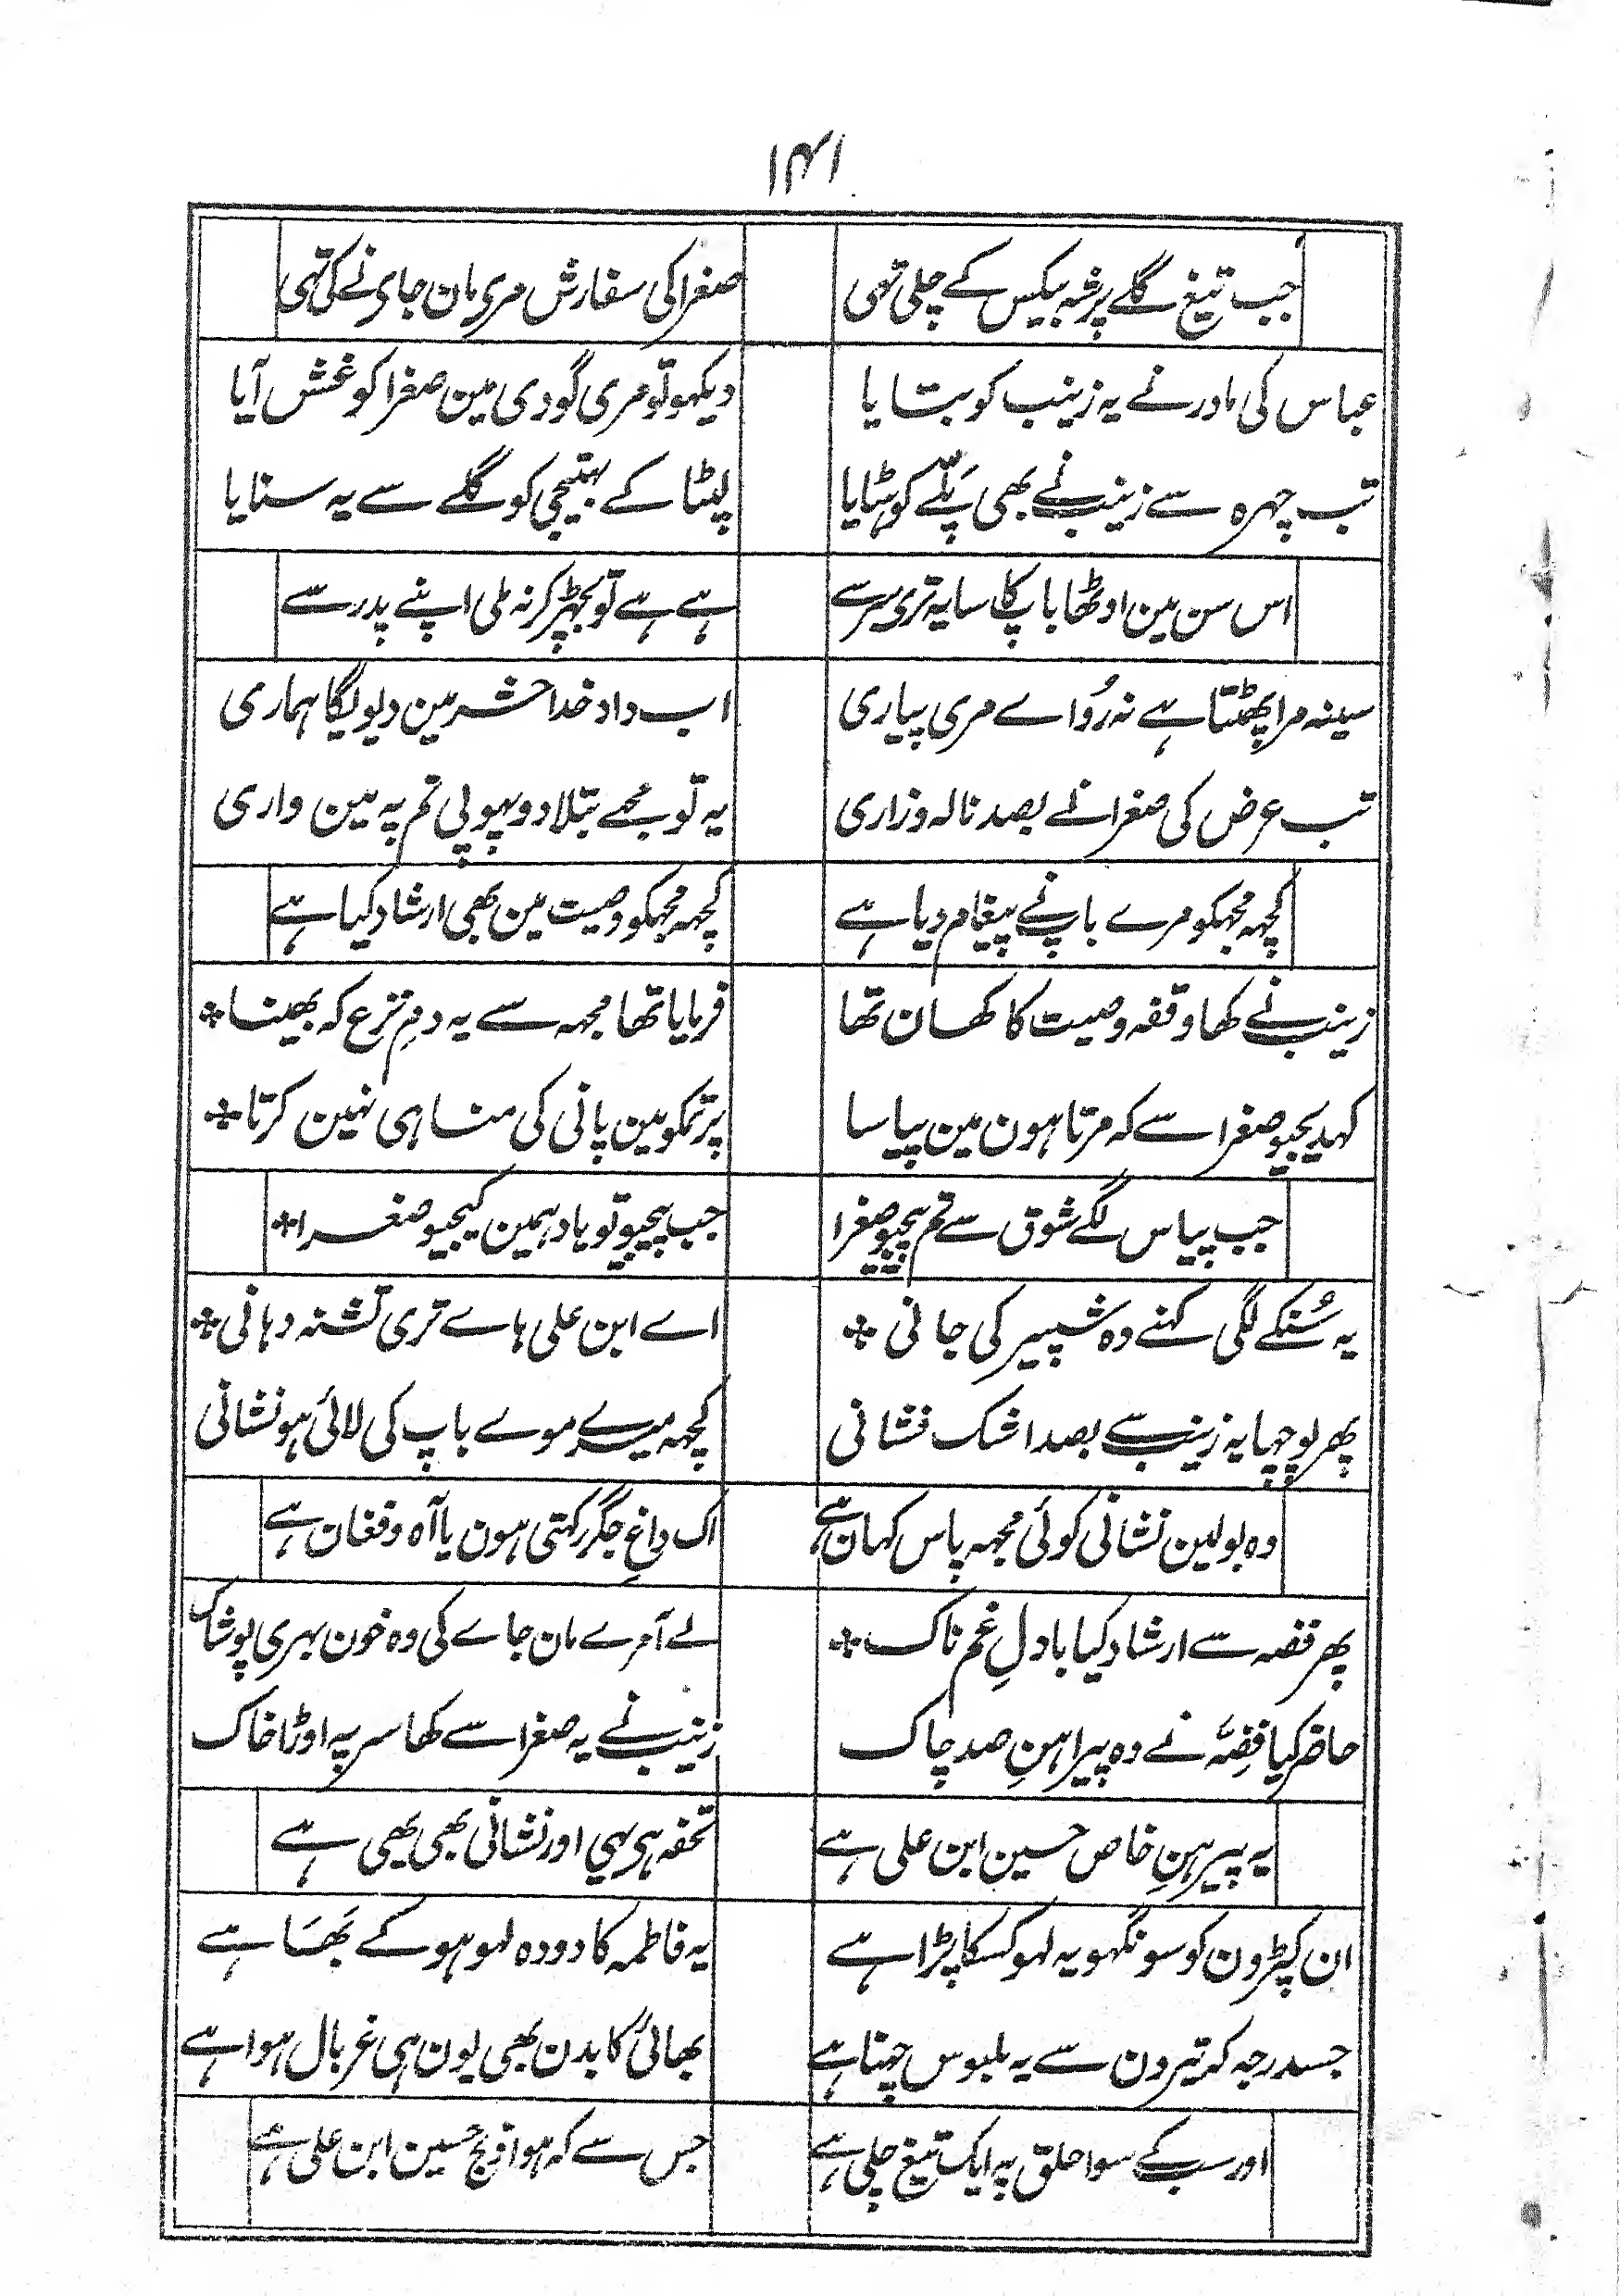 ۱۴۱
جب تیغ گلے پر شہ بیکس کے چلی تھی
صغرا کی سفارش مری مان جای نے کی تہی
عباس کی مادر نے یہ زینب کو بتایا
دیکہو تو مری گودی مین صغرا کو غش آیا
تب چہرہ سے زینب نے بھی پَلّے کو ہٹایا
لپٹا کے بہتیجی کو گلے سے یہ سنایا
اس سن مین اوٹھا باپ کا سایہ تری سر سے
ہے ہے تو بچہڑ کر نہ ملی اپنے پدر سے
سینہ مرا پھٹتا ہے نہ رُو اے مری پیاری
اب داد خدا حشر مین دیولیگا ہماری
تب عرض کی صغرا نے بصد نالہ وزاری
یہ تو مجے بتلادو پہوپی تم پہ مین واری
کچہہ مجہکو مرے باپ نے پیغام دیا ہے
کچہہ مجہکو وصیت مین بھی ارشاد کیا ہے
زینب نے کھا وقفہ وصیت کا کھان تھا
فرمایا تھا مجہہ سے یہ دمِ نزع کہ بھینا ❖
کہدیجیو صغرا سے کہ مرتا ہون مین پیاسا
پر تمکو مین پانی کی مناہی نہین کرتا ❖
جب پیاس لگے شوق سے تم پیجیو صغرا
جب پیجیو تو یاد ہمین کیجیو صغرا ❖
یہ سُنکے لگی کہنے وہ شبیر کی جانی ❖
اے ابن علی ہاے تری تشنہ دہانی ❖
پھر پوچہا یہ زینب سے بصد اشک فشانی
کچہہ میرے موے باپ کی لائی ہو نشانی
وہ بولین نشانی کوئی مجہہ پاس کہان ہے
اک داغِ جگر رکہتی ہون یا آہ وفغان ہے
پھر فضہ سے ارشاد کیا بادلِ غم ناک ❖
لے آ مرے مان جاے کی وہ خون بہری پوشاک
حاضر کیا فِضّہ نے وہ پیراہنِ صد چاک
زینب نے یہ صغرا سے کھا سر پہ اوڑا خاک
یہ پیرہنِ خاص حسین ابن علی ہے
تحفہ ہی یہی اور نشانی بھی یھی ہے
ان کپڑون کو سونگہو یہ لہو کسکا پڑا ہے
یہ فاطمہ کا دودہ لہو ہو کے بَھَا ہے
جسدرجہ کہ تیرون سے یہ ملبوس چہنا ہے
بھائی کا بدن بھی یون ہی غربال ہوا ہے
اور سب کے سوا حلق پہ ایک تیغ چلی ہے
جس سے کہ ہوا ذبح حسین ابن علی ہے